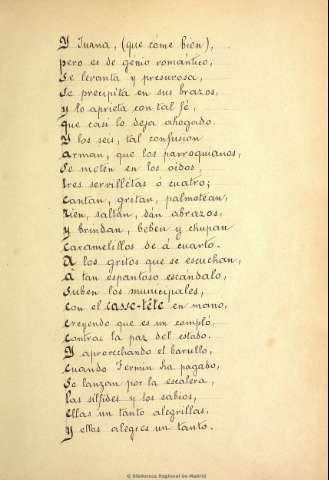 Y Juana, (que cóme bien),
pero es de génio romántico,
Se levanta y presurosa,
Se precipita en sus brazos,
y lo aprieta con tal fé,
que casi lo deja ahogado.
Y los seis, tal confusion
arman, que los parroquianos,
Se metén en los oidos,
tres servillétas ó cuatro;
Cantan, gritan, palmotéan,
rien, saltan, dán abrazos,
y brindan, beben y chupan
Caramelillos de á cuarto.
A los gritos que se escuchan,
á tan espantoso escándalo,
Suben los municipales,
con el casse-tête en mano,
Creyendo que es un compló,
contra la paz del estado.
Y aprovechando el barullo,
cuando Fermin ha pagado,
Se lanzan por la escalera,
las silfides y los sabios,
ellas un tanto alegrillas,
y ellos alegres un tanto.
© Biblioteca Regional de Madrid